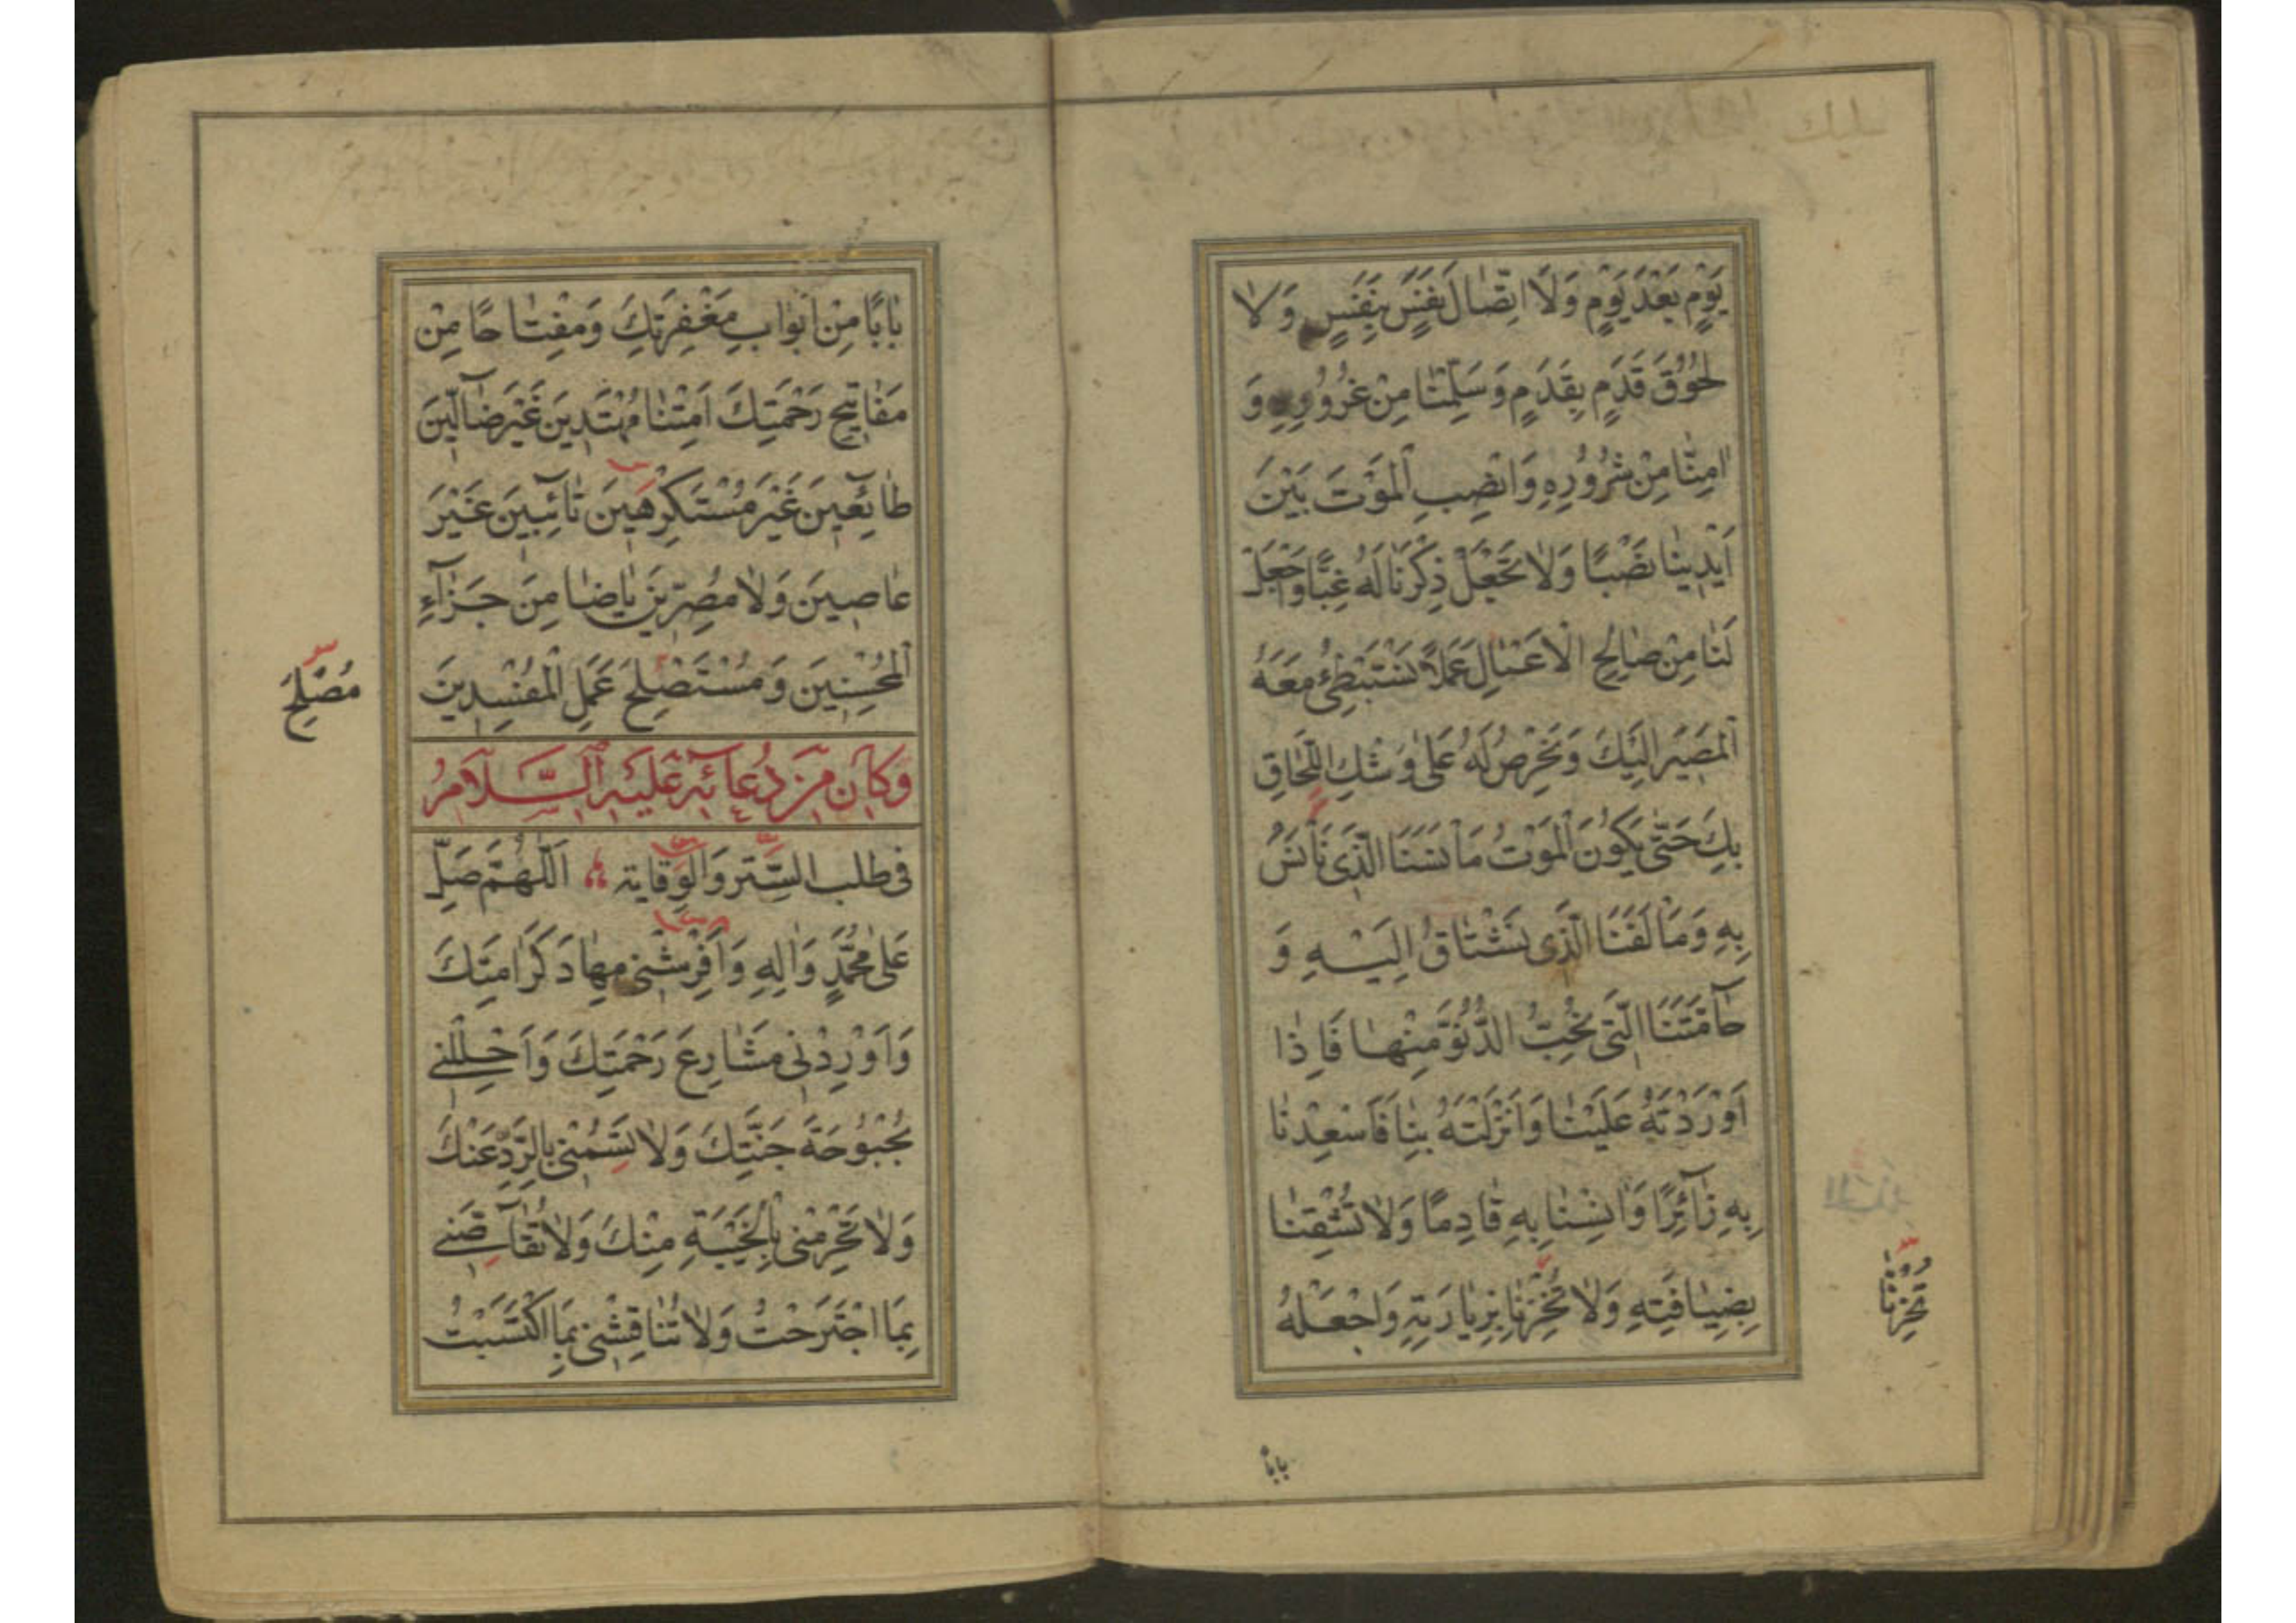 يَوْمٍ بَعْدَ يَوْمٍ وَلَا اتِّصٰالَ نَفَسٍ بِنَفَسٍ وَلٰا
لُحُوْقَ قَدَمٍ بِقَدَمٍ وَسَلِّمْنٰا مِنْ غُرُوْرِهِ وَ
اٰمِنّٰا مِنْ شُرُوُرِهِ وَانْصِبِ الْمَوْتَ بَيْنَ
اَيْدِينٰا نَصْبًا وَلٰا تَجْعَلْ ذِكْرَنٰا لَهُ غِبًّا وَاجْعَلْ
لَنٰا مِنْ صٰالِحِ الْاَعْمٰالِ عَمَلاً نَسْتَبْطِئُ مَعَهُ
الْمَصِيرَ اِلَيْكَ وَنَحْرِصُ لَهُ عَلىٰ وَشْكِ اللَّحٰاقِ
بِكَ حَتّىٰ يَكُونَ الْمَوْتُ مَاْنَسَنَا الَّذِى نَاْنَسُ
بِهِ وَمَاْلَفَنَا الَّذِى نَشْتٰاقُ اِلَيْهِ وَ
حٰآمَّتَنَا الَّتِى نُحِبُّ الدُّنُوَّ مِنْهٰا فَاِذٰا
اَوْرَدْتَهُ عَلَيْنٰا وَاَنْزَلْتَهُ بِنٰا فَاَسْعِدْنٰا
بِهِ زٰآئِرًا وَاٰنِسْنٰا بِهِ قٰادِمًا وَلٰا تُشْقِنٰا
بِضِيٰافَتِهِ وَلٰا تُخْزِنٰا بِزِيٰارَتِهِ وَاجْعَلْهُ
تَحْزُنٰا
بابًا
بٰابًا مِنْ اَبْوٰابِ مَغْفِرَتِكَ وَمِفْتٰاحًا مِنْ
مَفٰاتِيحِ رَحْمَتِكَ اَمِتْنٰا مُهْتَدِينَ غَيْرَ ضٰآلِّينَ
طٰائِعِينَ غَيْرَ مُسْتَكْرِهِينَ تٰائِبِينَ غَيْرَ
عٰاصِينَ وَلٰا مُصِرِّينَ يٰاضٰامِنَ جَزٰآءِ
الْمُحْسِنِينَ وَمُسْتَصْلِحَ عَمَلِ الْمُفْسِدِينَ
مُصْلِحَ
وَكٰانَ مِنْ دُعٰائِهِ عَلَيْهِ السَّلٰامُ
فى طلب السِّتر وَالوِقاية اَللّٰهُمَّ صَلِّ
عَلىٰ مُحَمَّدٍ وَاٰلِهِ وَاَفْرِشْنِى مِهٰادَ كَرَامَتِكَ
وَاَوْرِدْنِى مَشٰارِعَ رَحْمَتِكَ وَاَحْلِلْنِى
بُحْبُوْحَةَ جَنَّتِكَ وَلٰا تَسُمْنِى بِالرَّدِّ عَنْكَ
وَلٰا تَحْرِمْنِى بِالْخَيْبَةِ مِنْكَ وَلٰا تُقٰآصِّنِى
بِمَا اجْتَرَحْتُ وَلٰا تُنٰاقِشْنِى بِمَا اكْتَسَبْتُ